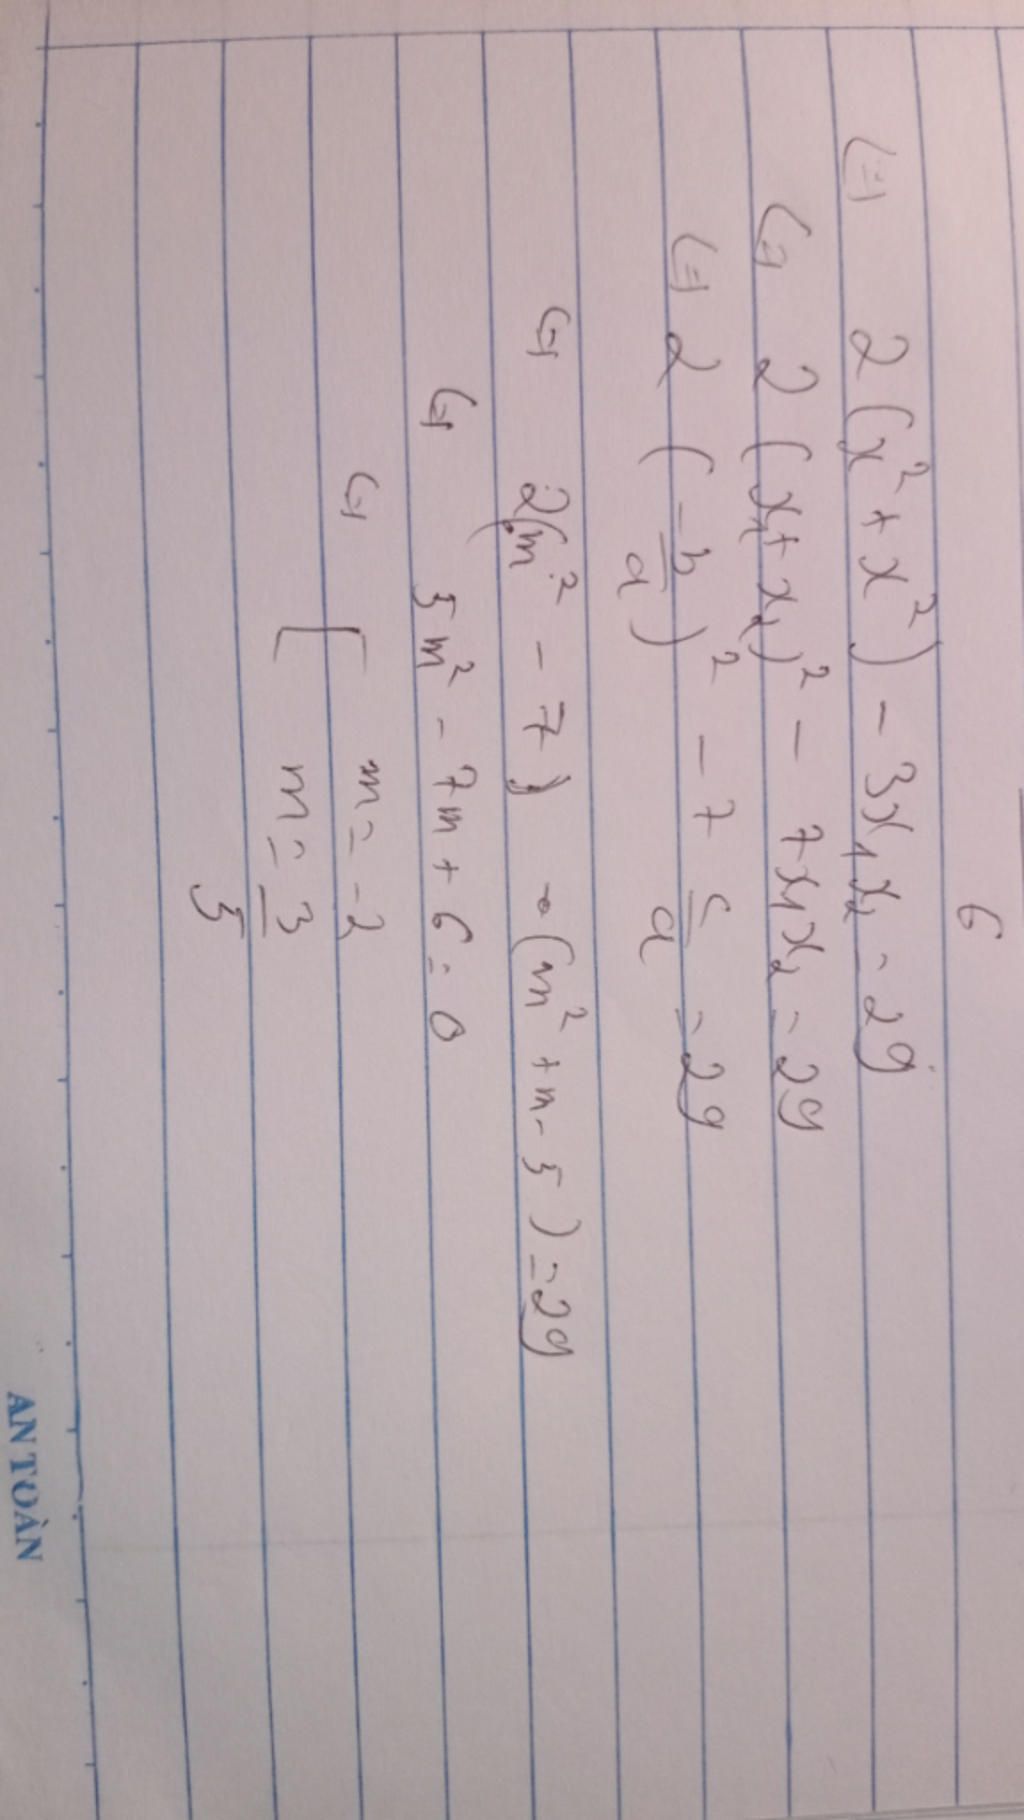 6
(=) 2(x² + x²) - 3x₁x₂ = 29
(=) 2(x₁ + x₂)² - 7x₁x₂ = 29
(=) 2(-b/a)² - 7 c/a = 29
(=) 2(m² - 7) - (m² + m - 5) = 29
(=) 5m² - 7m + 6 = 0
(=) [ m = -2
m = 3/5
AN TOÀN